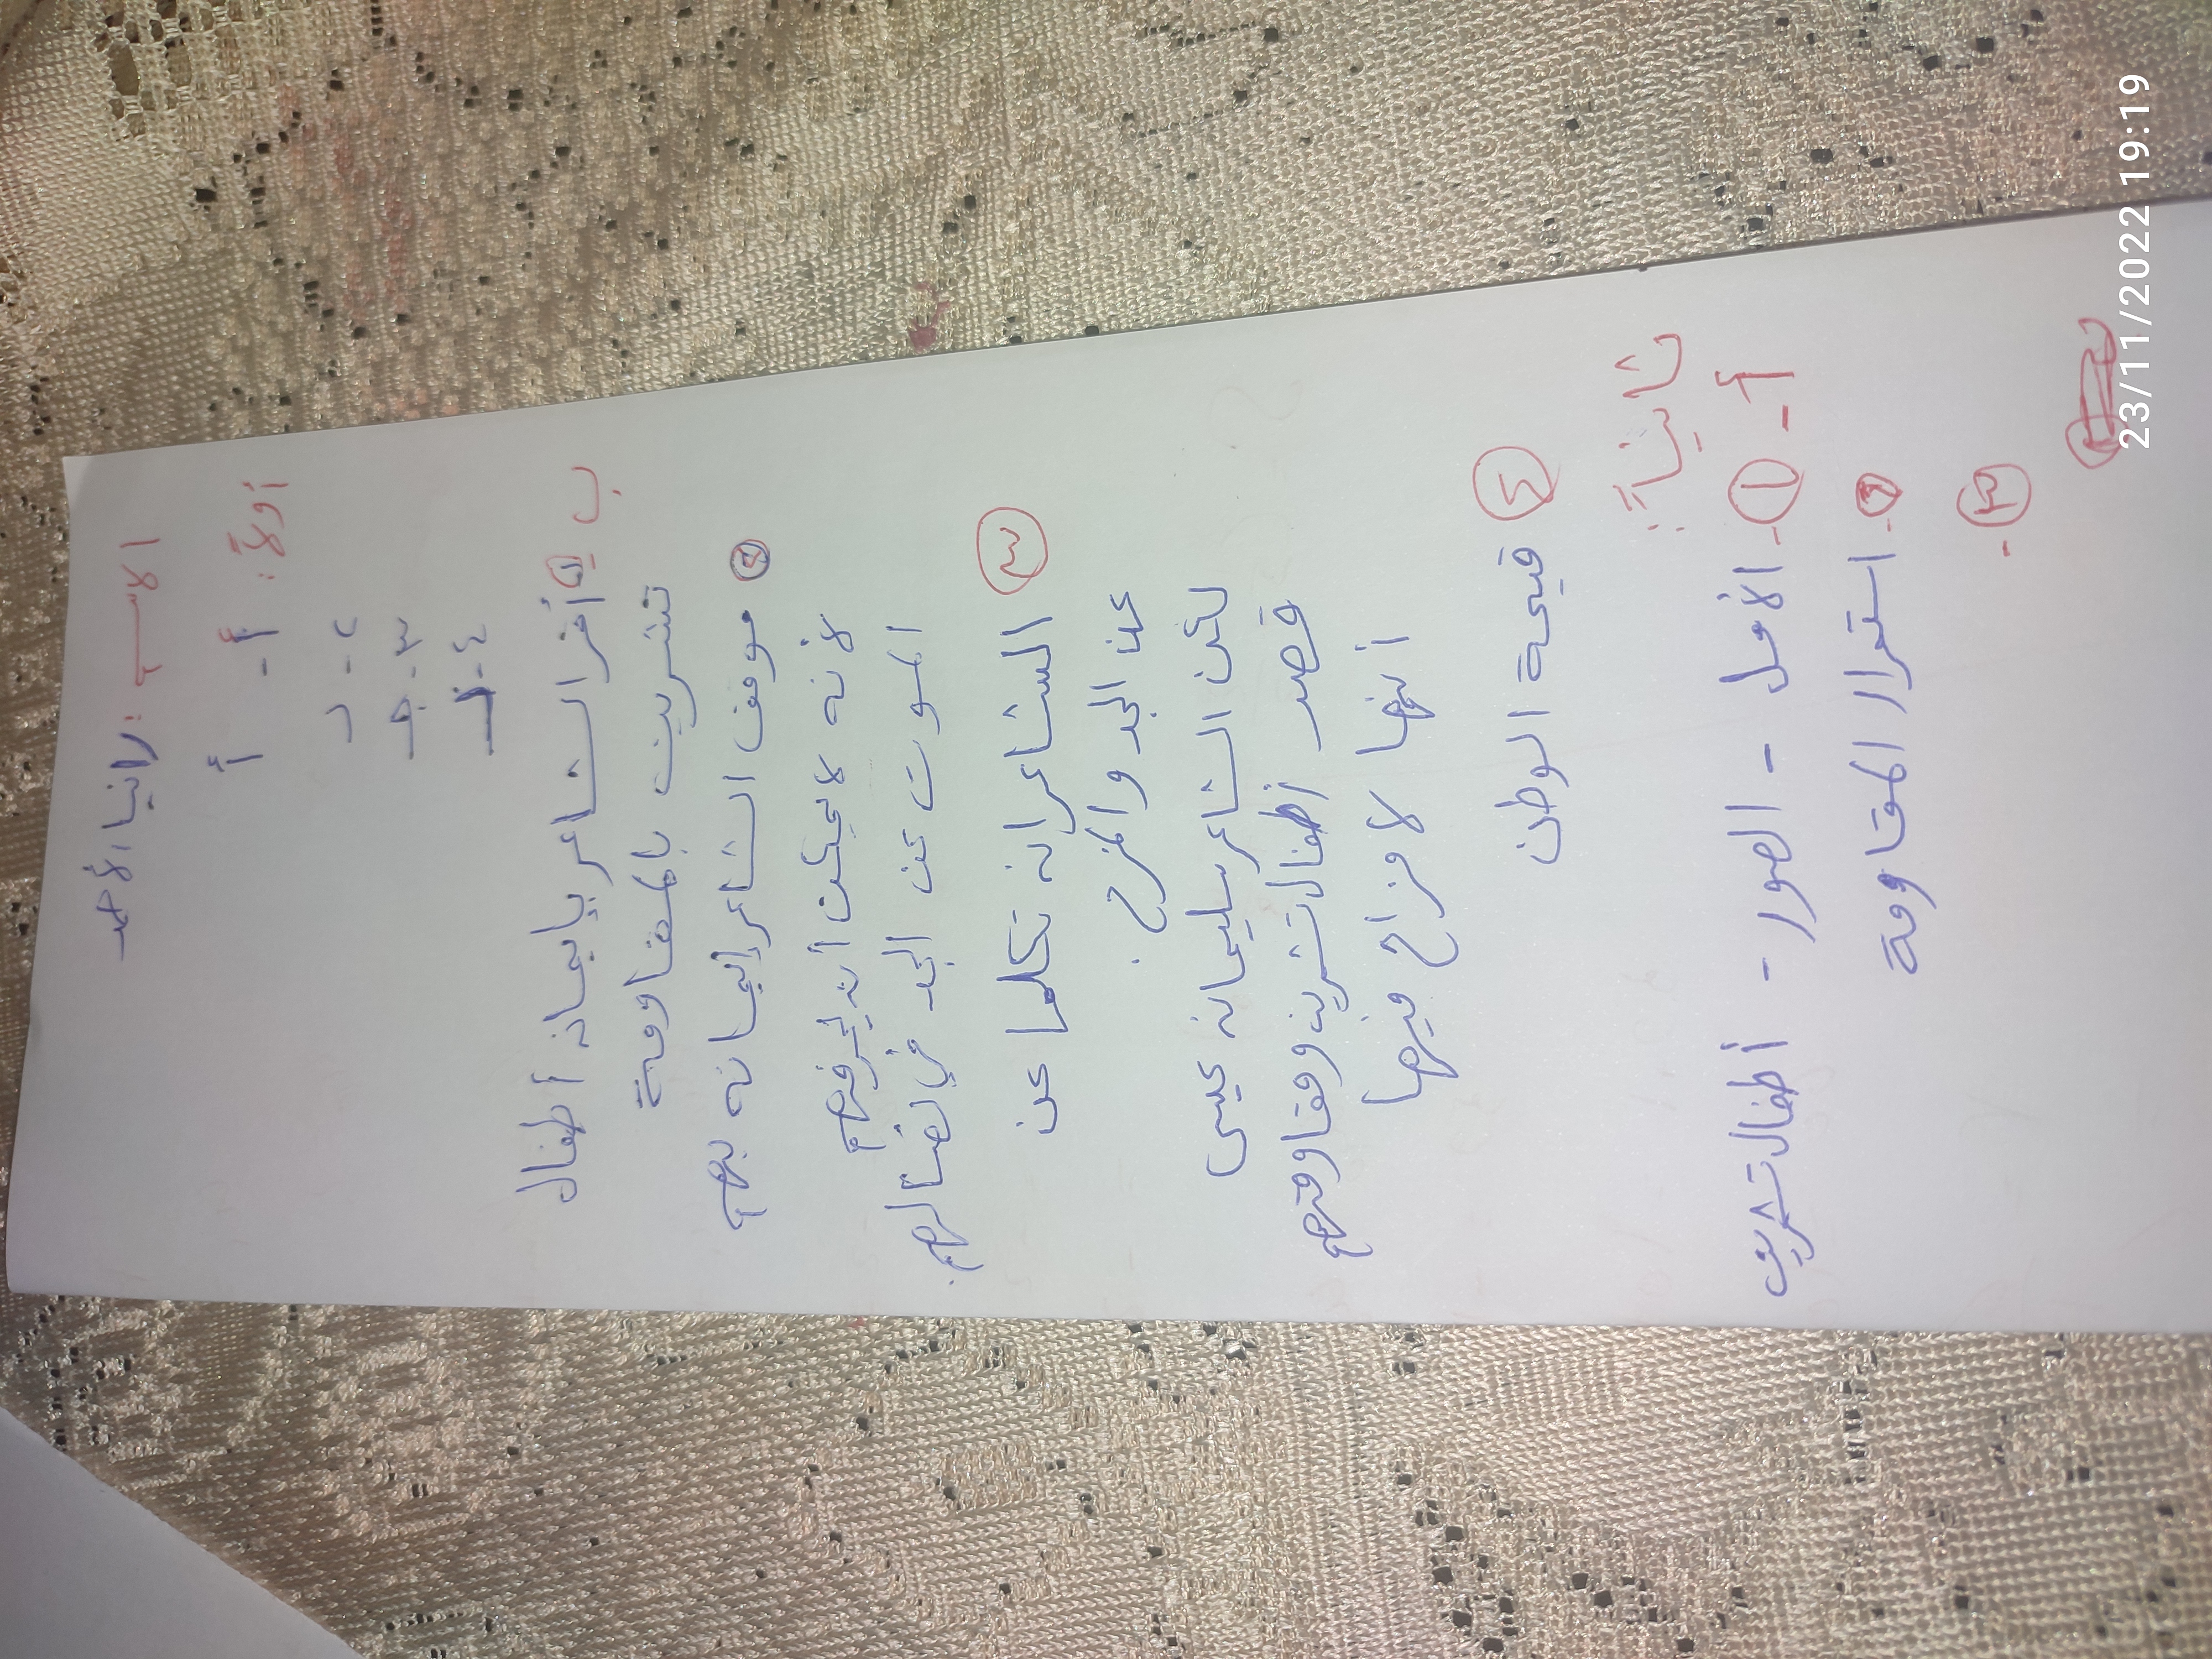 الاسم: رانيا الأحمد
أولاً:
أ- أ
٢- د
٣- جـ
٤-
ب أقر الشاعر بإيمان أطفال
تشرين بالمقاومة
٢ موقف الشاعر إيمانه بهم
لأنه لا يمكن أن يجرفهم
الموت عن الجد في لهم.
٣ الشاعرانه تكلما عن
عن الجد والمزح.
لكن الشاعر سليمانه عيسى
قصد أطفال تشرين ومقاومتهم
أنها لا مزاح فيها
٤ قيمة الوطن
ثانياً:
أ- ١- الأمل - الصور - أطفال تشرين
٢- استمرار المقاومة
٣-
23/11/2022 19:19